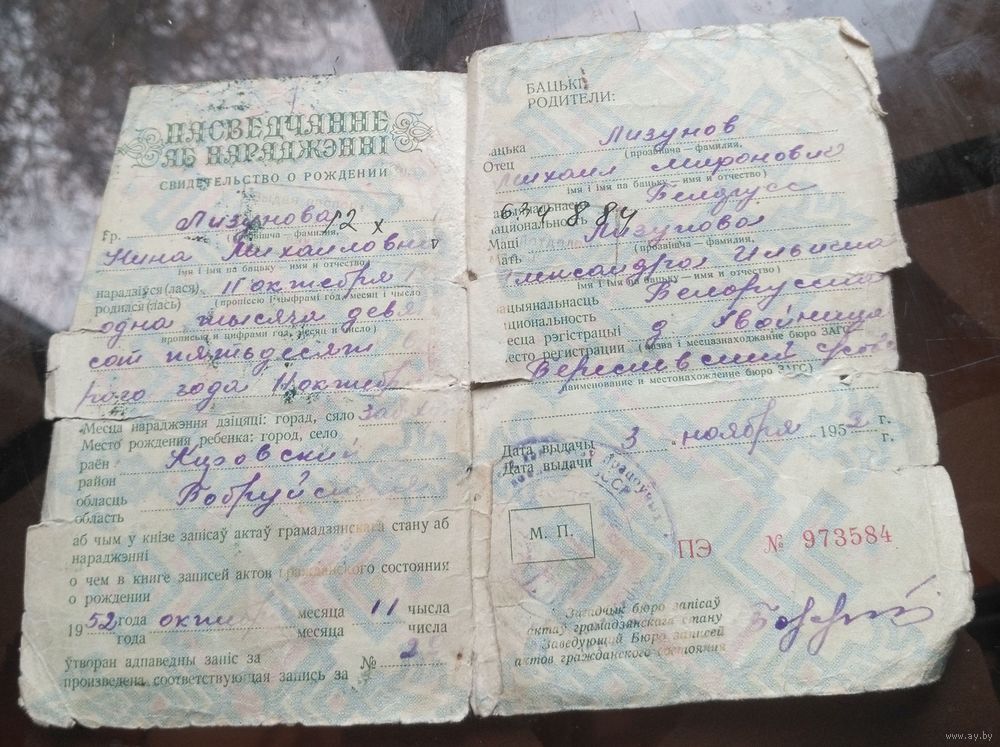 ПАСВЕДЧАННЕ
АБ НАРАДЖЭННІ
СВИДЕТЕЛЬСТВО О РОЖДЕНИИ
Гр. Лизунова
прозвішча — фамилия,
Нина Михайловна
імя і імя па бацьку — имя и отчество)
нарадзіўся (лася) 11 октября
родился (лась) (пропіссю і цыфрамі год, месяц і число
одна тысяча девя
прописью и цифрами год, месяц и число)
сот пятьдесят
рого года 11 октябр
Месца нараджэння дзіцяці: горад, сяло
Место рождения ребенка: город, село
раён Кировский
район
обласць Бобруйс
область
аб чым у кнізе запісаў актаў грамадзянскага стану аб
нараджэнні
о чем в книге записей актов гражданского состояния
о рождении
1952 года месяца 11 чысла
года месяца числа
ўтворан адпаведны запіс за № 2
произведена соответствующая запись за
БАЦЬКІ
РОДИТЕЛИ:
Бацька Лизунов
Отец (прозвішча — фамилия,
Михаил Миронович
імя і імя па бацьку — имя и отчество)
Белорусс
634 884
Маці Лизунова
Мать (прозвішча — фамилия,
Александра Ильинична
імя і імя па бацьку — имя и отчество)
цыянальнасць Белорусска
циональность
есца рэгістрацыі д.
есто регистрации (назва і месцазнаходжанне бюро ЗАГС)
(наименование и местонахождение бюро ЗАГС)
Дата выдачы 3 ноября 1952 г.
Дата выдачи г.
М. П.
ПЭ № 973584
Загадчык бюро запісаў
актаў грамадзянскага стану
Заведующий Бюро записей
актов гражданского состояния
www.ay.by